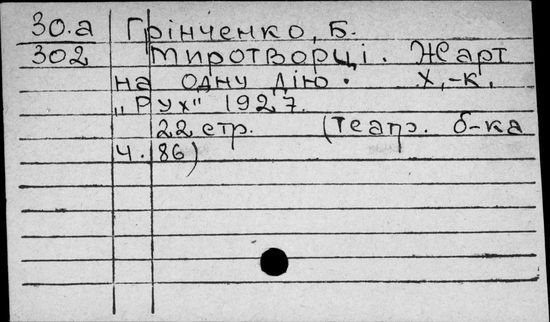 30.а Грінченко, Б.
302 Миротворці. Жарт
на одну дію. Х.,-К.,
"Рух" 1927.
22 стр. (Театр. б-ка
Ч. 86)